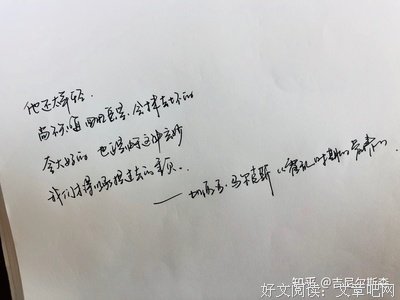 他还太年轻
尚不知道回忆总是会抹去坏的
夸大好的 也正是由于这种玄妙
我们才得以承担过去的重负
——加西亚·马尔克斯《霍乱时期的爱情》
知乎 @吉尼尔斯森
好文阅读：文章吧网